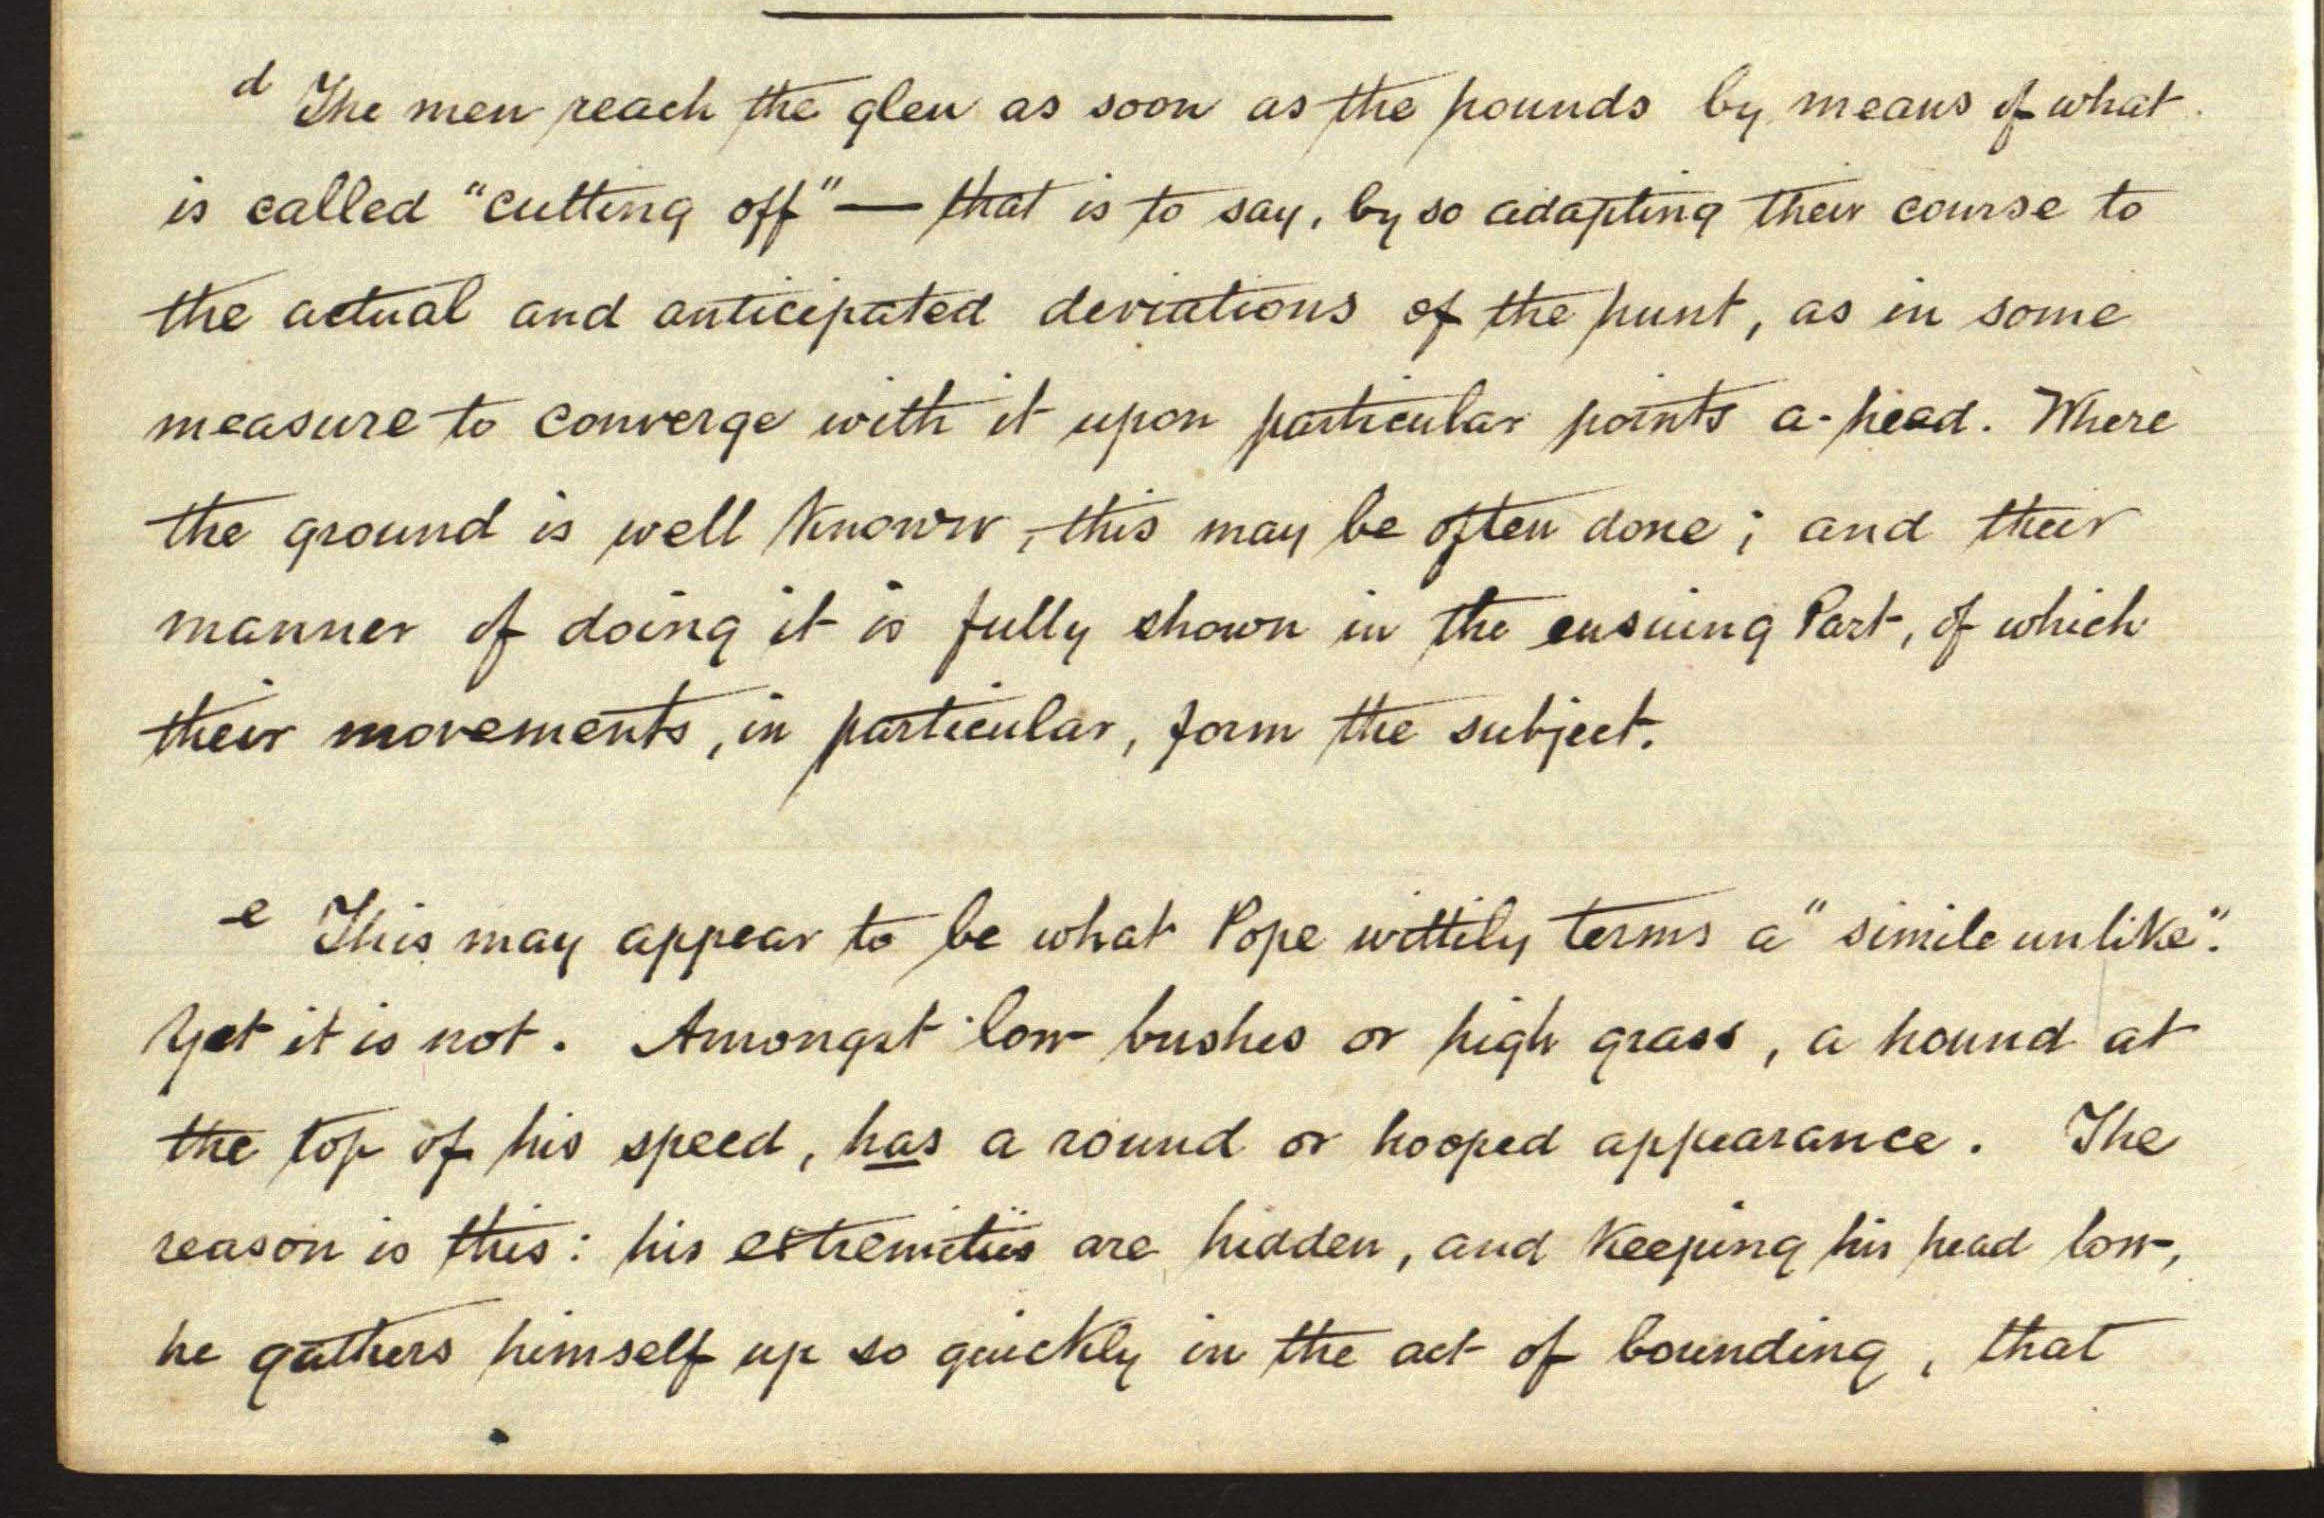 d The men reach the glen as soon as the hounds by means of what
is called "cutting off" — that is to say, by so adapting their course to
the actual and anticipated deviations of the hunt, as in some
measure to converge with it upon particular points a-head. Where
the ground is well known, this may be often done; and their
manner of doing it is fully shown in the ensuing Part, of which
their movements, in particular, form the subject.
e This may appear to be what Pope wittily terms a "simile unlike".
Yet it is not. Amongst low bushes or high grass, a hound at
the top of his speed, has a round or hooped appearance. The
reason is this: his extremities are hidden, and keeping his head low,
he gathers himself up so quickly in the act of bounding, that